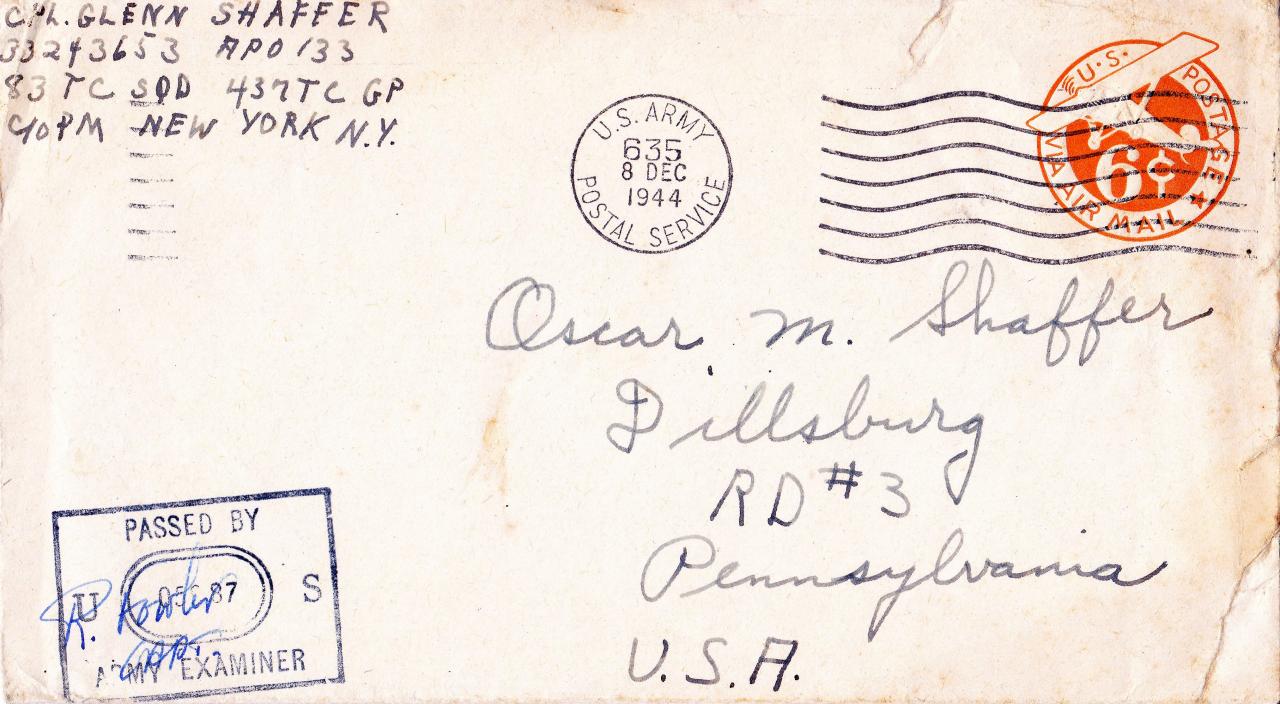 CPL. GLENN SHAFFER
33243653 APO 133
83 TC SQD 437 TC GP
C/O PM NEW YORK N.Y.
U.S. ARMY
635
8 DEC
1944
POSTAL SERVICE
U.S. POSTAGE
6¢
VIA AIR MAIL
Oscar M. Shaffer
Dillsburg
RD #3
Pennsylvania
U.S.A.
PASSED BY
U S
ARMY EXAMINER